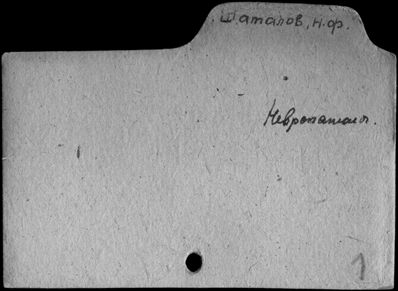 Шаталов, Н.Ф.
Невропатолог.
1